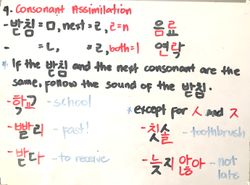 9. Consonant Assimilation
- 받침 = ㅁ, next = ㄹ, ㄹ=ㄴ 음료
- = ㄴ, " ㄹ, both = ㄹ 연락
* If the 받침 and the next consonant are the
same, follow the sound of the 받침.
- 학교 - school *except for ㅅ and ㅈ
- 빨리 - fast! - 칫솔 - toothbrush
- 받다 - to receive - 늦지 않아 - not
late